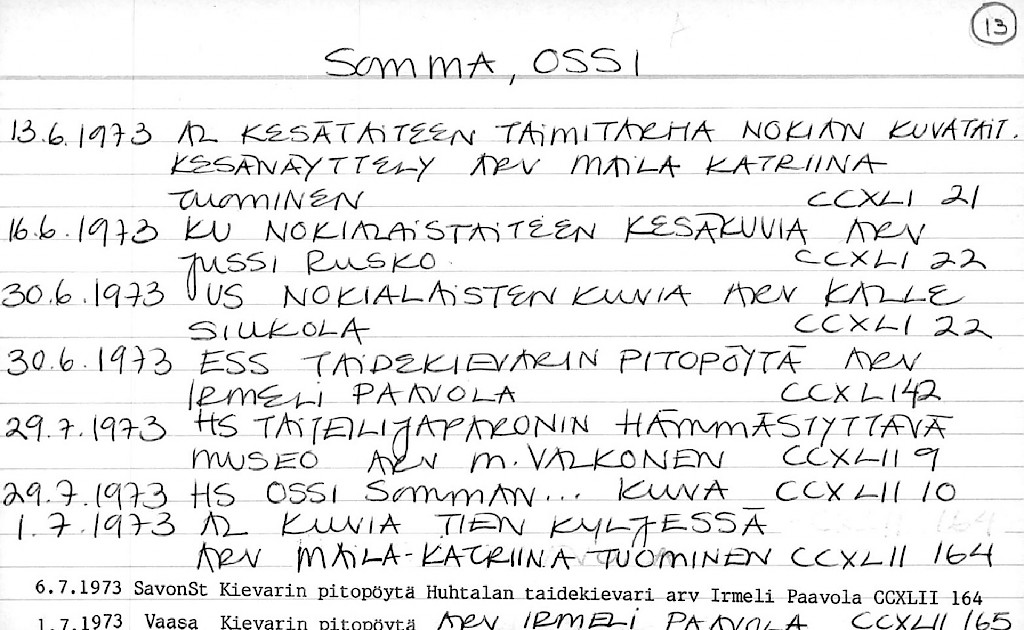 13
SOMMA, OSSI
13.6.1973 AL KESÄTAITEEN TAIMITARHA NOKIAN KUVATAIT.
KESÄNÄYTTELY ARV MAILA KATRIINA
TUOMINEN CCXLI 21
16.6.1973 KU NOKIALAISTAITEEN KESÄKUVIA ARV
JUSSI RUSKO. CCXLI 22
30.6.1973 US NOKIALAISTEN KUVIA ARV KALLE
SIUKOLA CCXLI 22
30.6.1973 ESS TAIDEKIEVARIN PITOPÖYTÄ ARV
IRMELI PAAVOLA CCXLI 42
29.7.1973 HS TAITEILIJAPARONIN HÄMMÄSTYTTÄVÄ
MUSEO ARV M. VALKONEN CCXLII 9
29.7.1973 HS OSSI SOMMAN... KUVA CCXLII 10
1.7.1973 AL KUVIA TIEN KYLJESSÄ
ARV MAILA-KATRIINA TUOMINEN CCXLII 164
6.7.1973 SavonSt Kievarin pitopöytä Huhtalan taidekievari arv Irmeli Paavola CCXLII 164
1.7.1973 Vaasa Kievarin pitopöytä ARV IRMELI PAAVOLA CCXLII 165